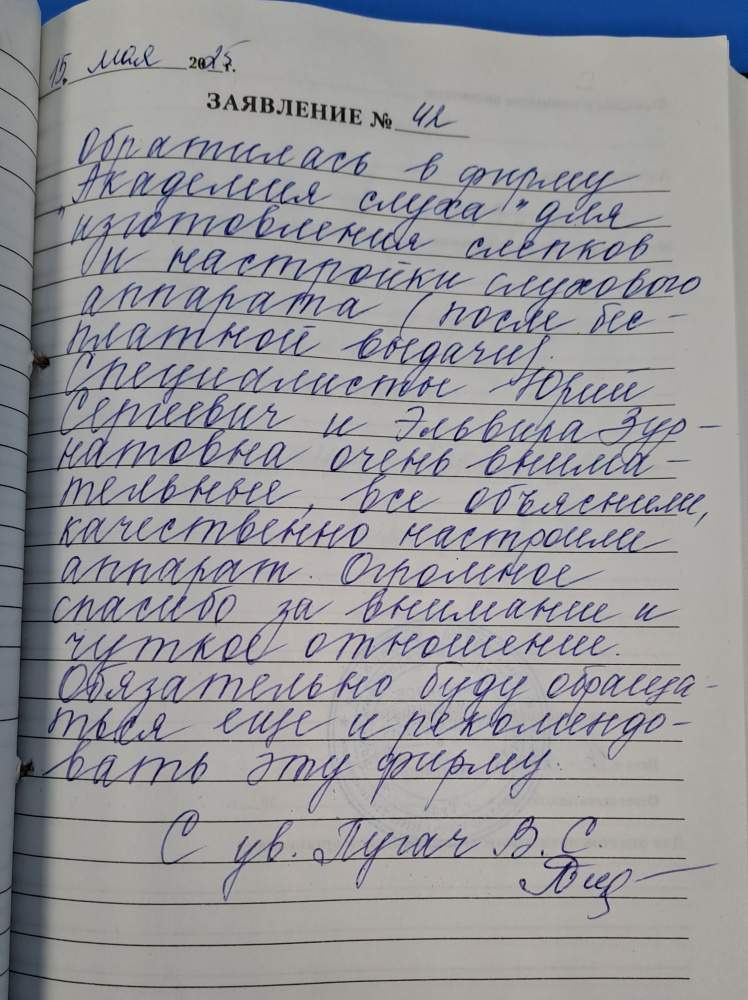 15. мая 2025 г.
ЗАЯВЛЕНИЕ № 42
Обратилась в фирму
"Академия слуха" для
изготовления слепков
и настройки слухового
аппарата (после бес-
платной выдачи).
Специалисты Юрий
Сергеевич и Эльвира Зур-
натовна очень внима-
тельные, все объяснили,
качественно настроили
аппарат. Огромное
спасибо за внимание и
чуткое отношение.
Обязательно буду обраща-
ться еще и рекомендо-
вать эту фирму.
С ув. Пугач В. С.